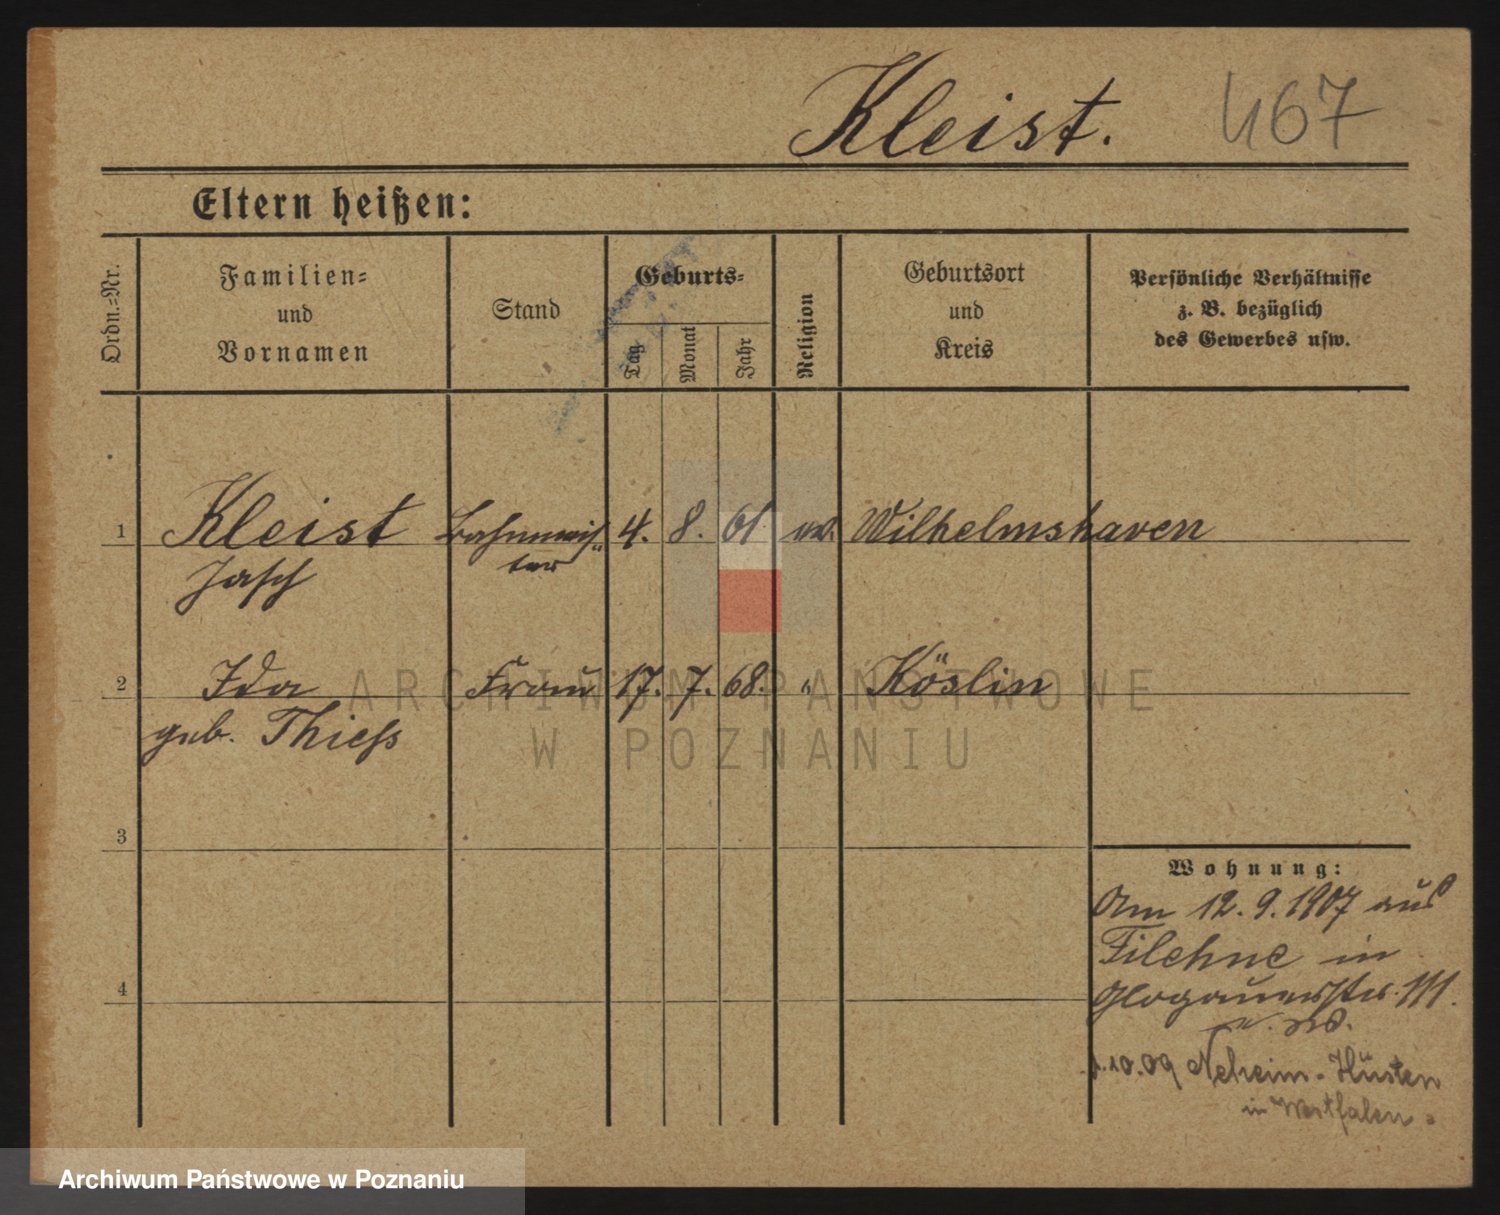 Kleist. 467
Eltern heißen:
Ordn.-Nr.
Familien-
und
Vornamen
Stand
Geburts-
Tag
Monat
Jahr
Religion
Geburtsort
und
Kreis
Persönliche Verhältnisse
z. B. bezüglich
des Gewerbes usw.
1 Kleist 4. 8. 61. ev. Wilhelmshaven
2 Ida Frau 17. 7. 68. " Köslin
geb. Thiess
3
4
Wohnung:
Am 12.9.1907 aus
Filehne in
Glogauerstr. 111.
1.10.09 Neheim-Hüsten
in Westfalen.
ARCHIWUM PAŃSTWOWE
W POZNANIU
Archiwum Państwowe w Poznaniu